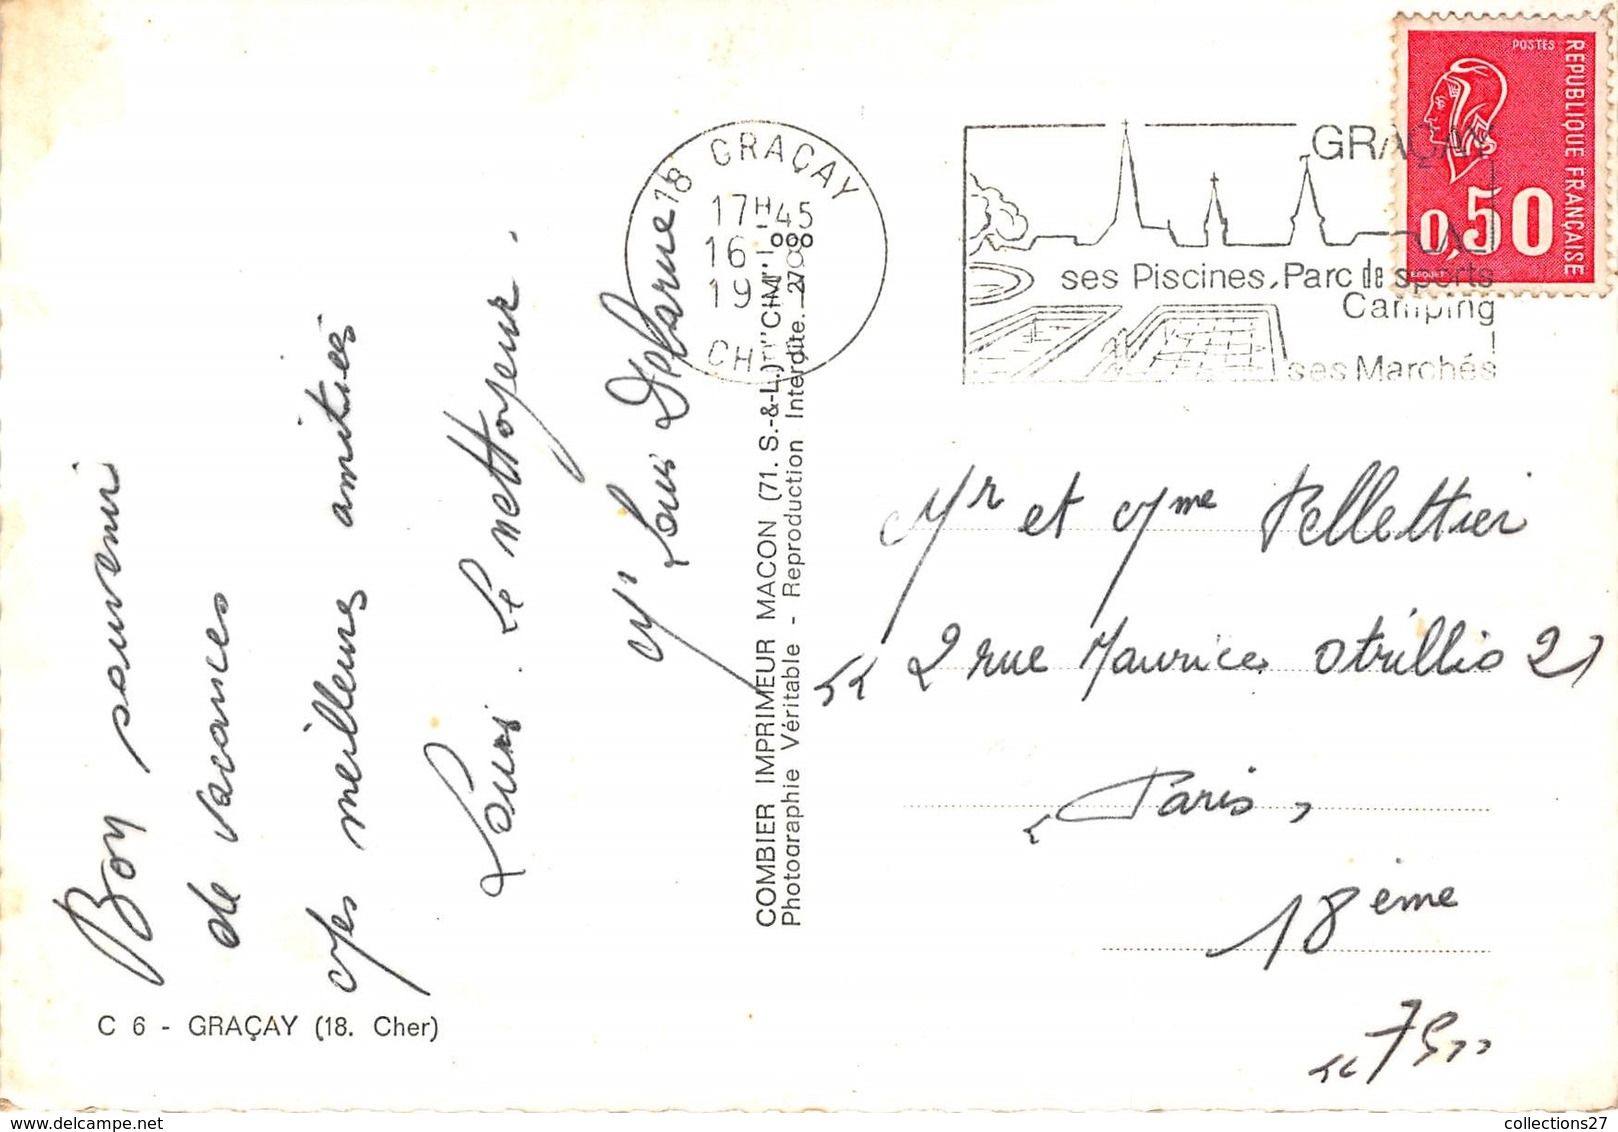 Bon souvenir
de vacances
Mes meilleures amitiés
Louis. Le nettoyeur.
Mr Louis Delarue
C 6 - GRAÇAY (18. Cher)
COMBIER IMPRIMEUR MACON (71. S.-&-L.) "CIM"
Photographie Véritable - Reproduction Interdite.
18 GRAÇAY
17H45
16
19
CH
GRAÇAY
ses Piscines, Parc de sports
Camping
ses Marchés
POSTES
REPUBLIQUE FRANÇAISE
0,50
Mr et Mme Pellettier
"2 rue Maurice Otrillio 21
"Paris,
18ème
"75"
delcampe.net
collections27